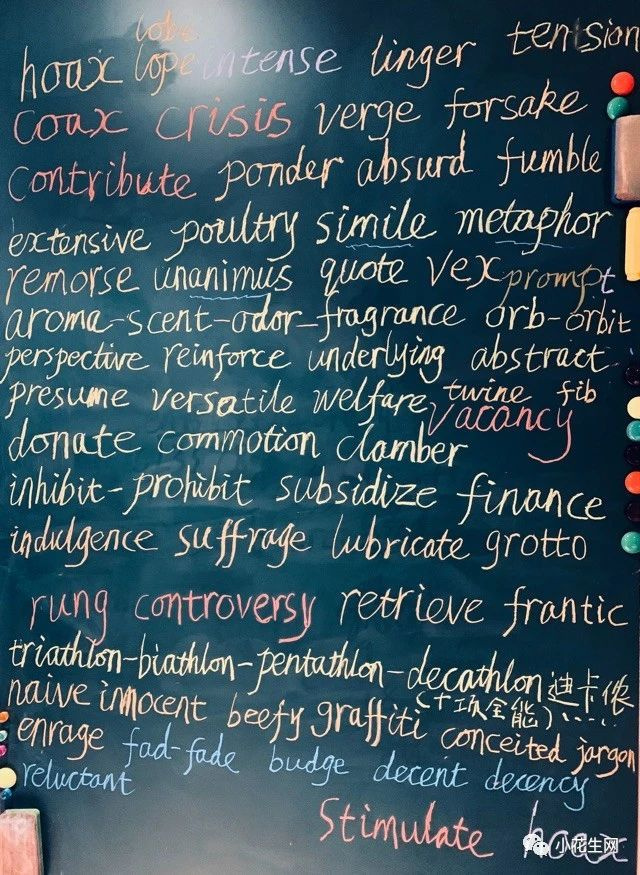 lobe
hoax lope intense linger tension
coax crisis verge forsake
contribute ponder absurd fumble
extensive poultry simile metaphor
remorse unanimus quote vex prompt
aroma-scent-odor-fragrance orb-orbit
perspective reinforce underlying abstract
presume versatile welfare twine fib
vacancy
donate commotion clamber
inhibit-prohibit subsidize finance
indulgence suffrage lubricate grotto
rung controversy retrieve frantic
triathlon-biathlon-pentathlon-decathlon 迪卡侬
(十项全能)......
naive innocent beefy graffiti conceited jargon
enrage fad-fade budge decent decency
reluctant
Stimulate hoax
小花生网